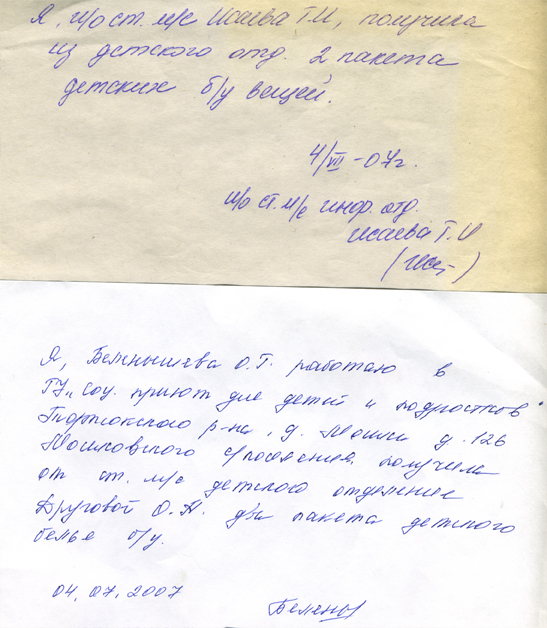 Я, и/о ст. м/с Исаева Т.И, получила
из детского отд. 2 пакета
детских б/у вещей.
4/VII -07г.
и/о ст. м/с инф. отд.
Исаева Т.И
Я, О.Т. работаю в
ГУ „ Соц. приют для детей и подростков "
р-на, д. Мошки д. 126
Мошковского с/поселения, получила
от ст. м/с детского отделения
Друговой О.Н. два пакета детского
белья б/у.
04.07.2007